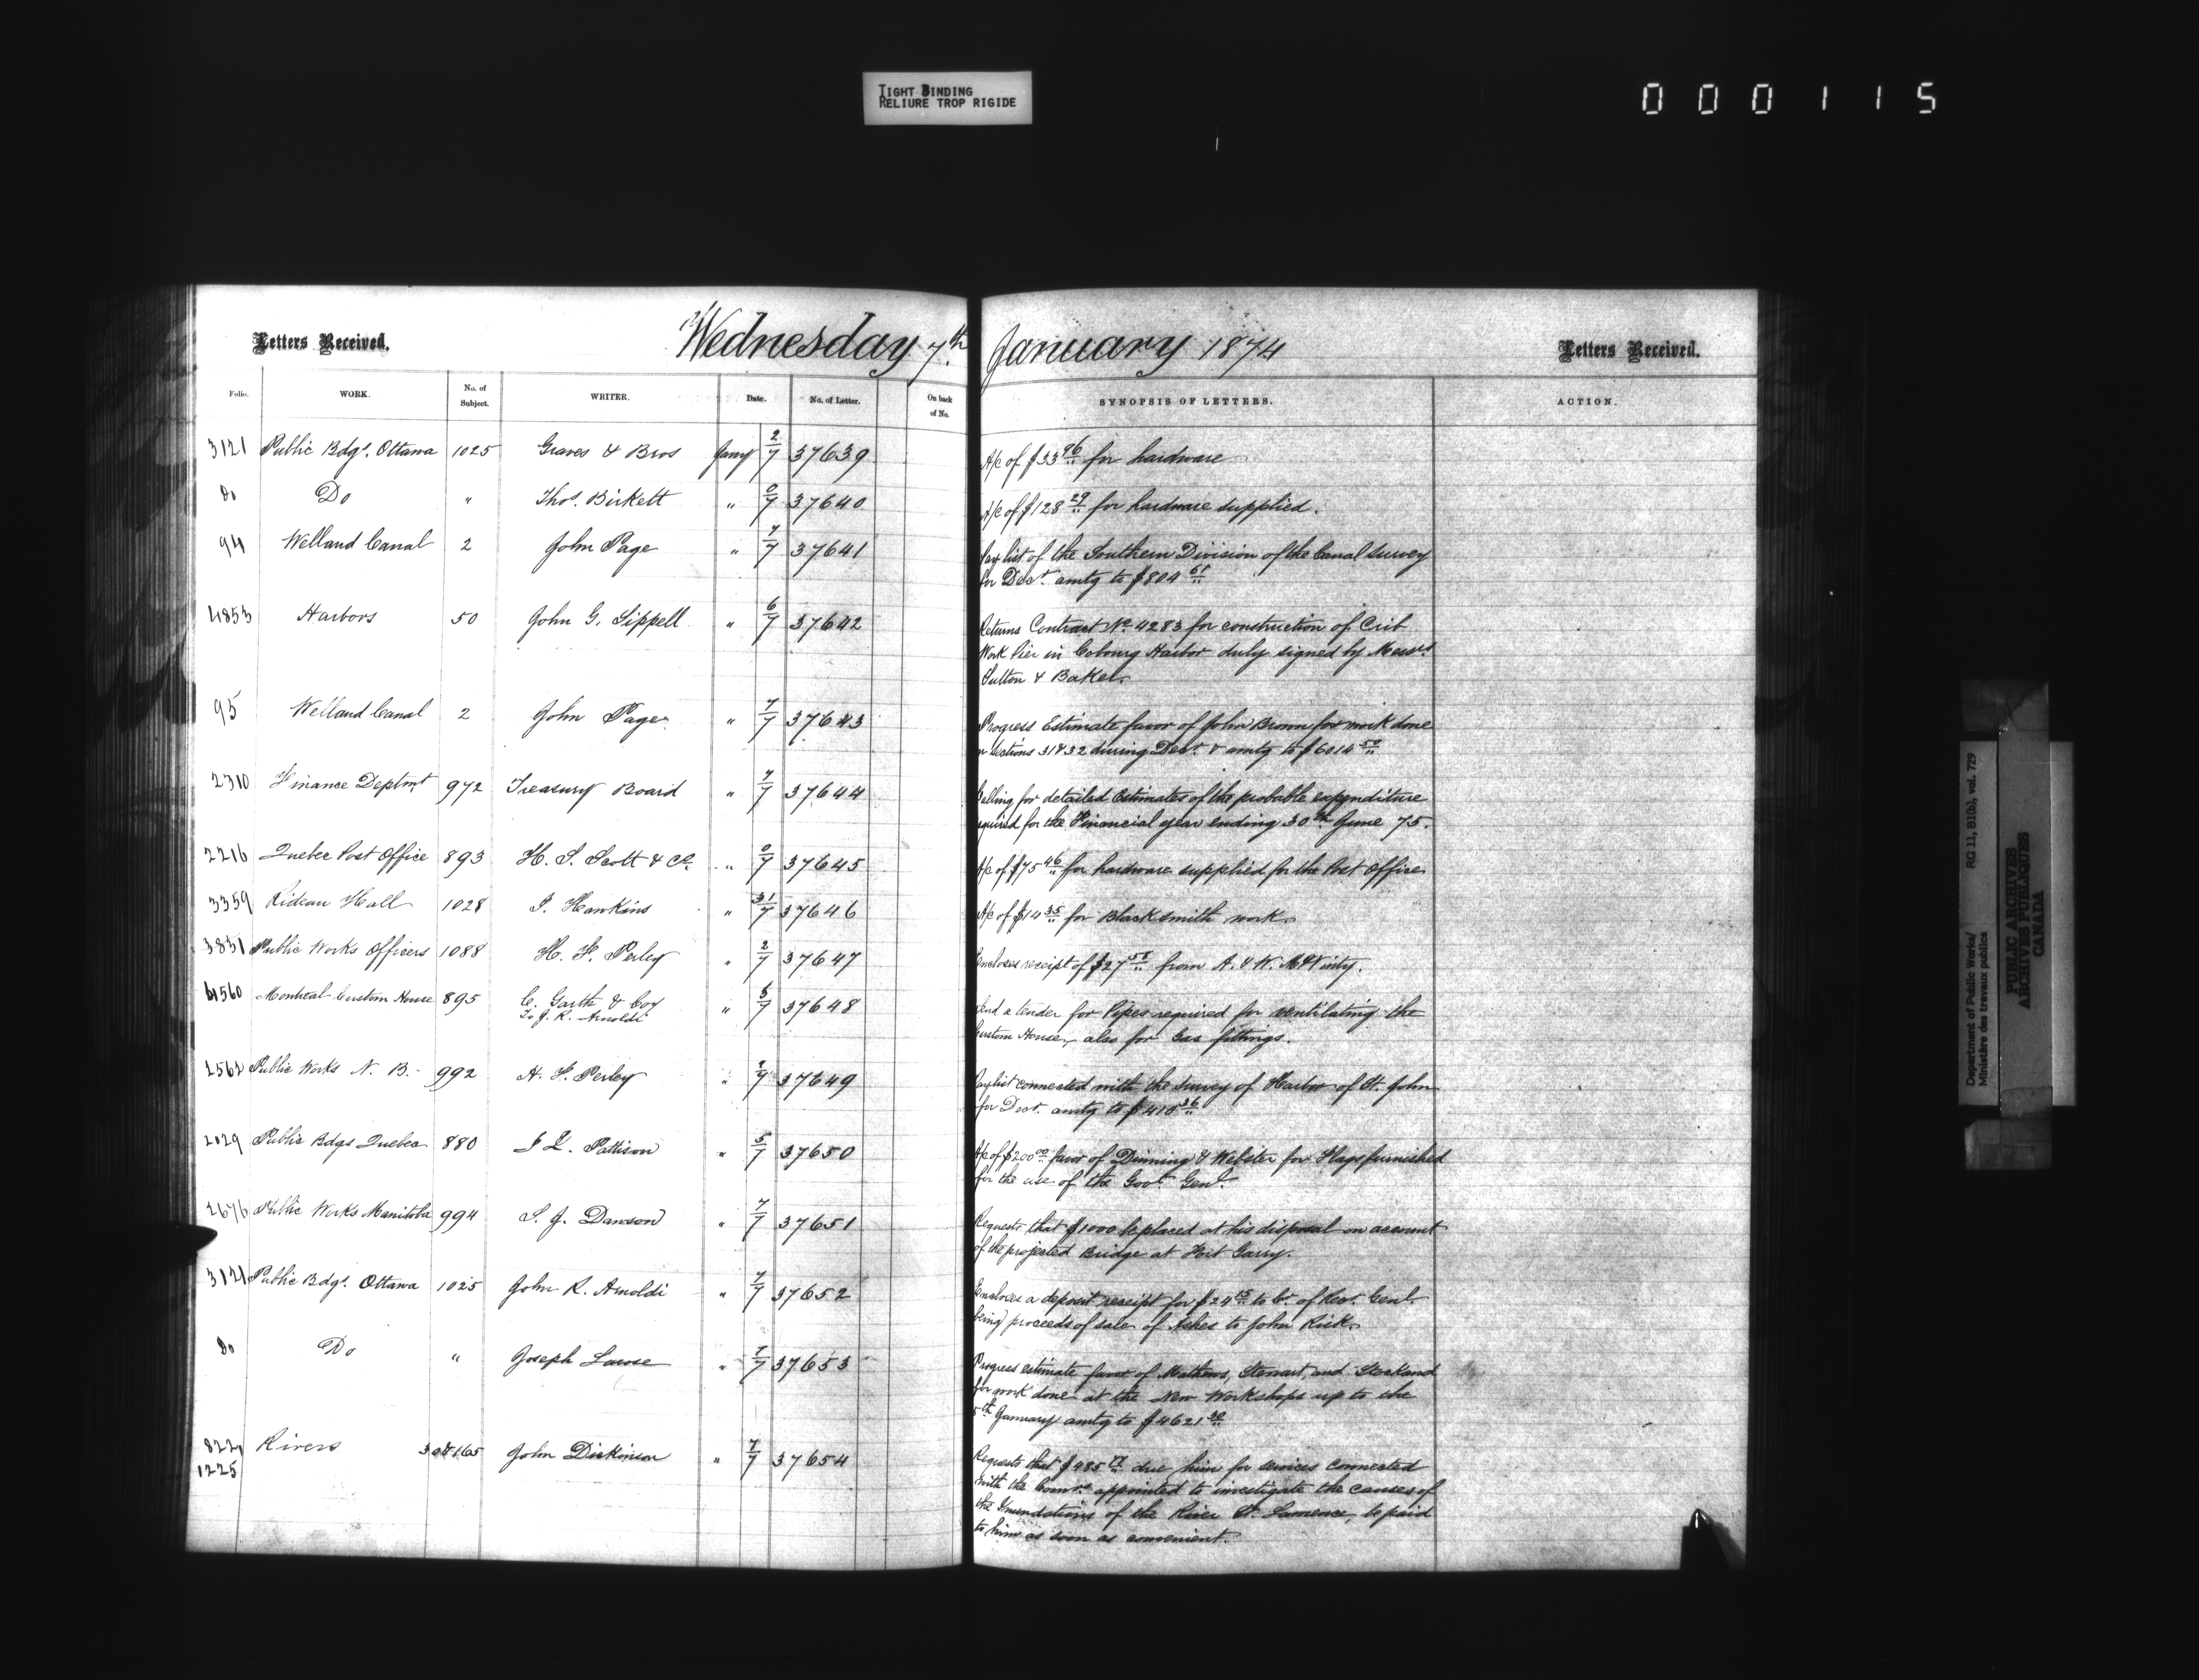 TIGHT BINDING
RELIURE TROP RIGIDE
000115
Letters Received. Wednesday 7th January 1874 Letters Received.
Folio. WORK. No. of Subject. WRITER. Date. No. of Letter. On back of No. SYNOPSIS OF LETTERS. ACTION.
3121 Public Bdgs. Ottawa 1025 Graves & Bros Jany 2/7 37639 A/c of $33 96 for hardware
Do Do " Thos. Birkett " 0/7 37640 A/c of $128 29 for hardware supplied.
94 Welland Canal 2 John Page " 7/7 37641 Pay list of the Southern Division of the Canal Survey
for Decr. amtg to $804 61
4853 Harbors 50 John G. Sippell " 6/7 37642 Returns Contract No. 4283 for construction of Crib
Work Pier in Cobourg Harbor duly signed by Messrs
Sutton & Baker.
95 Welland Canal 2 John Page " 7/7 37643 Progress Estimate favor of John Brown for work done
on Sections 31 & 32 during Decr. & amtg to $6014 50
2310 Finance Deptmt 972 Treasury Board " 7/7 37644 Calling for detailed Estimates of the probable expenditure
required for the Financial year ending 30th June 75.
2216 Quebec Post Office 893 H. S. Scott & Co. " 0/7 37645 A/c of $75 46 for hardware supplied for the Post Office
3359 Rideau Hall 1028 J. Hawkins " 31/7 37646 A/c of $14 35 for Blacksmith work.
3831 Public Works Officers 1088 H. F. Perley " 2/7 37647 Encloses receipt of $27 58 from A. & W.
1560 Montreal Custom House 895 C. Garth & Coy " 5/7 37648 Send a tender for Pipes required for ventilating the
To J. R. Arnoldi Custom House, also for Gas fittings.
Public Works N. B. 992 H. F. Perley " 37649 Paylist connected with the survey of Harbor of St. John
for Decr. amtg to $410 36
2029 Public Bdgs Quebec 880 Pattison " 5/7 37650 A/c of $200 00 favor of Dinning & Webster for Flags furnished
for the use of the Govr. Genl.
2676 Public Works Manitoba 994 S. J. Dawson " 7/7 37651 Requests that $1000 be placed at his disposal on account
of the projected Bridge at Fort Garry.
3121 Public Bdgs. Ottawa 1025 John R. Arnoldi " 7/7 37652 Encloses a deposit receipt for $24 15 to Cr. of Recr. Genl.
being proceeds of sale of Ashes to John Rick.
Do Do " Joseph Larose " 7/7 37653 Progress estimate favor of Mathews, Stewart, and
for work done at the New Workshops up to the
5th January amtg to $4621 30
822 Rivers & 165 John Dickinson " 7/7 37654 Requests that $485 due him for services connected
1225 with the Comrs. appointed to investigate the causes of
the Inundations of the River St. Lawrence, be paid
to him as soon as convenient.
Department of Public Works/
Ministère des travaux publics
RG 11, B1(b), vol. 729
PUBLIC ARCHIVES
ARCHIVES PUBLIQUES
CANADA